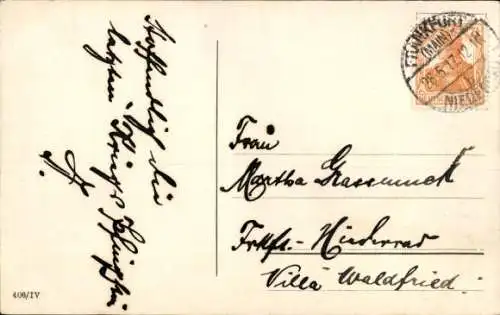 Hoffentlich die
letzten Kriegs Pfingsten
F.
FRANKFURT
(MAIN)
26.5.17.
NIEDERRAD
Frau
Martha Grassmuck
Frkft.-Niederrad
Villa Waldfried.
406/IV